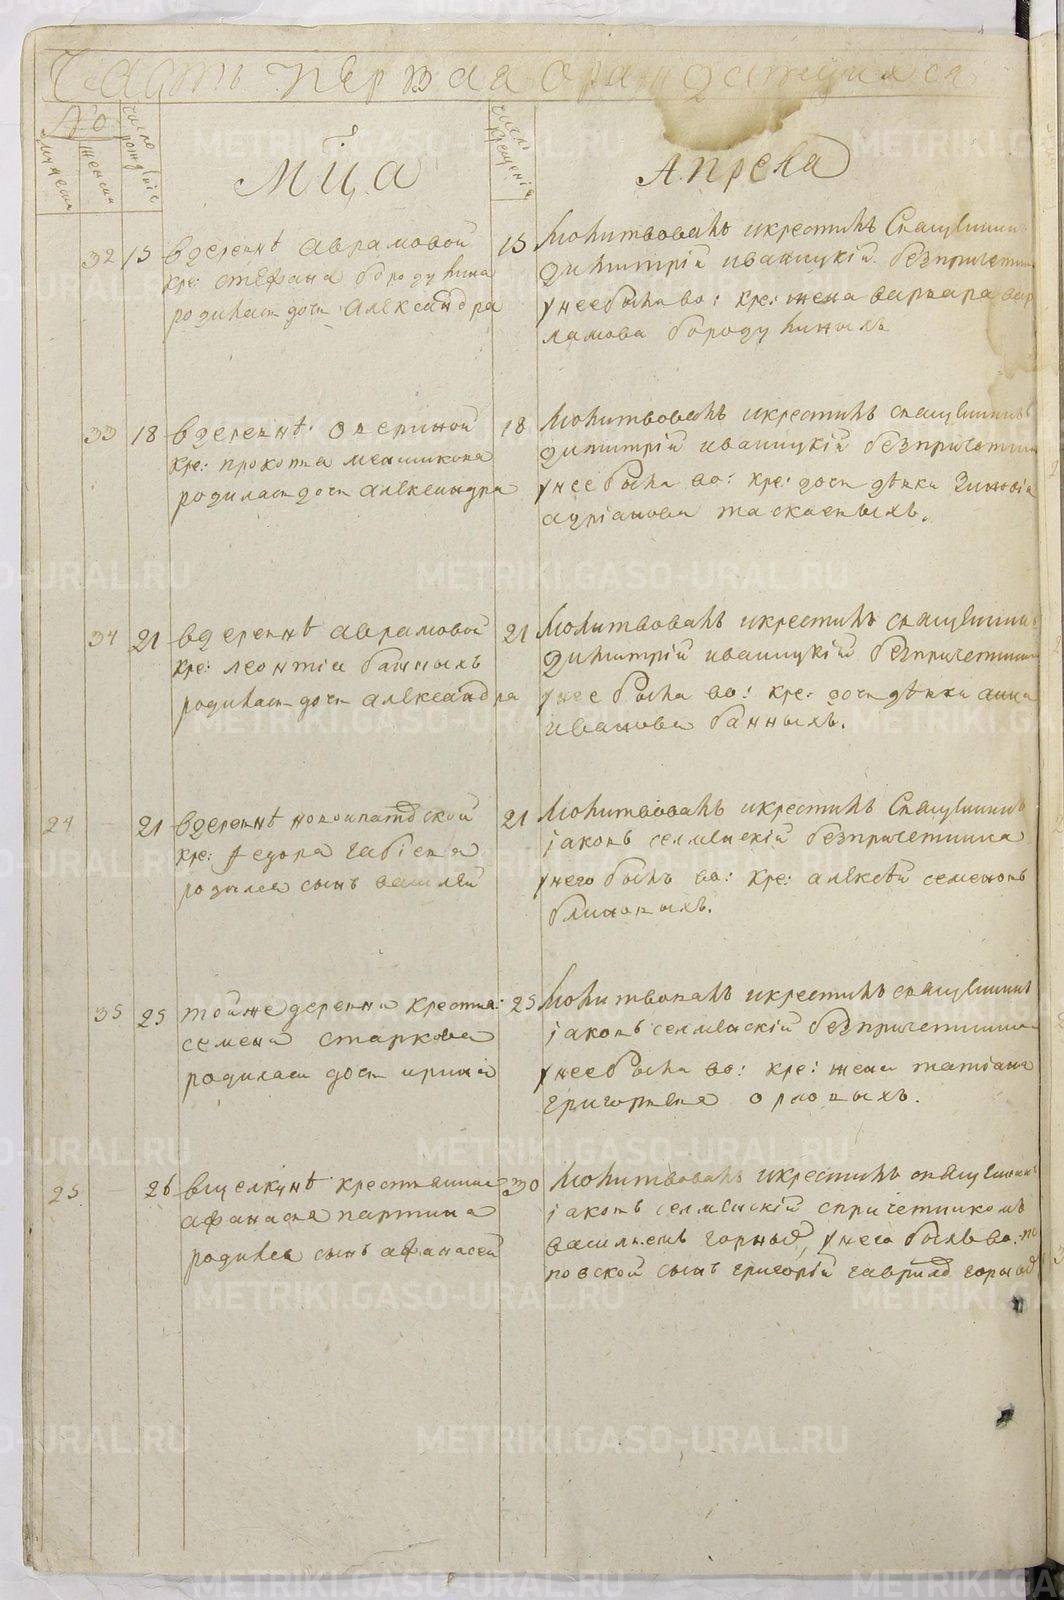 Часть первая о раждающихся
№
мужеска
женска
число рождения
Мца
число крещения
Апреля
32 15 в деревнѣ Аврамовой
кре: Стефана Бородулина
родилась дочь Александра
15 Молитвовалъ и крестилъ Священникъ
Димитрій Иваницкій безпричетника
у нее была во: кре: жена Варвара Вар
ламова Бородулиныхъ
33 18 в деревнѣ Озериной
кре: Прокопья Меншикова
родилась дочь Александра
18 Молитвовалъ и крестилъ священникъ
Димитрій Иваницкій безпричетника
у нее была во: кре: дочь дѣвка Зиновія
Адріанова Таскаевыхъ.
34 21 в деревнѣ Аврамовой
кре: Леонтія Банныхъ
родилась дочь Александра
21 Молитвовалъ и крестилъ священникъ
Димитрій Иваницкій безпричетника
у нее была во: кре: дочь дѣвка Анна
Иванова Банныхъ.
24 21 в деревнѣ Новоипатовской
кре: Федора
родился сынъ Василей
21 Молитвовалъ и крестилъ Священникъ
Іаковъ Селменскій безпричетника
у него былъ во: кре: Алексѣй Семеновъ
Блиновыхъ.
35 25 той же деревни крестья:
Семена Старкова
родилась дочь Ирина
25 Молитвовалъ и крестилъ священникъ
Іаковъ Селменскій безпричетника
у нее была во: кре: жена Татіана
Григорьева Орловыхъ.
25 26 в Щелкунѣ крестьянина
Афанасья Партина
родился сынъ Афанасей
30 Молитвовалъ и крестилъ священникъ
Іаковъ Селменскій с причетникомъ
Васильемъ у него былъ во: по
повской сынъ Григорій Гаврилов